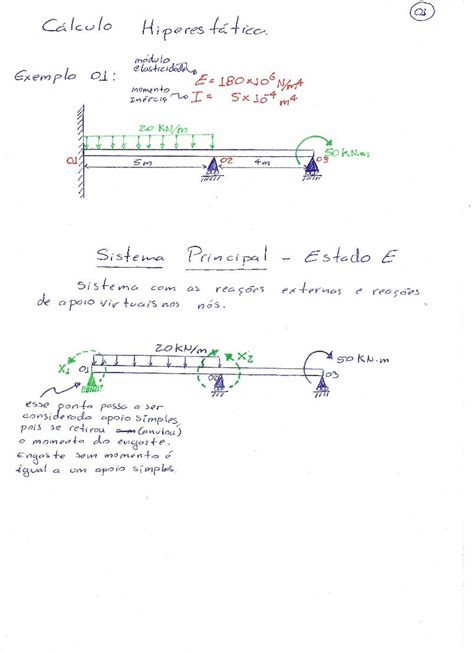 01
Cálculo Hiperestático.
Exemplo 01:
módulo elasticidade
E = 180×10⁶ N/m²
momento inércia
I = 5×10⁻⁴ m⁴
20 KN/m
50 KN.m
01
5m
02
4m
03
Sistema Principal - Estado E
Sistema com as reações externas e reações
de apoio virtuais nos nós.
20KN/m
X1
X2
50 KN.m
01
02
03
esse ponto passa a ser
considerado apoio simples,
pois se retirou (anulou)
o momento do engaste.
Engaste sem momento é
igual a um apoio simples.